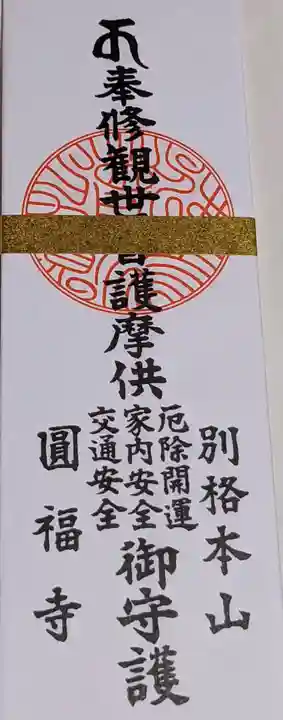 奉修観世音護摩供
厄除開運
家内安全
交通安全
御守護
別格本山
圓福寺